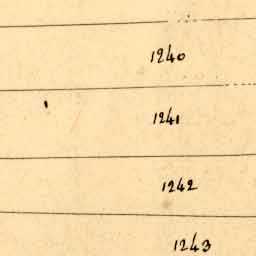 1240
1241
1242
1243